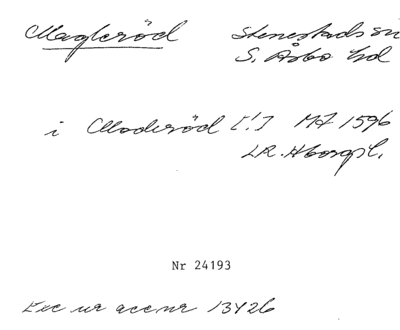 Magleröd Stenestads sn
S. Åsbo hd
i Moderöd [!] M7 1596
LR. Hborgsl.
Nr 24193
Exc ur acc nr 13426